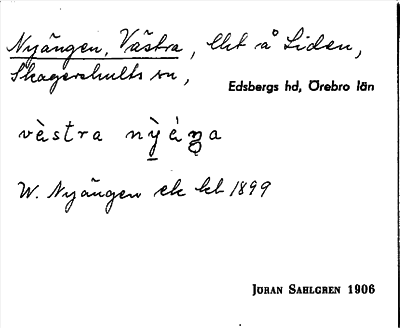 Nyängen, Västra, lht å Liden,
Skagershults sn,
Edsbergs hd, Örebro län
vàstra nỳéŋa
W. Nyängen ek bl 1899
JOHAN SAHLGREN 1906